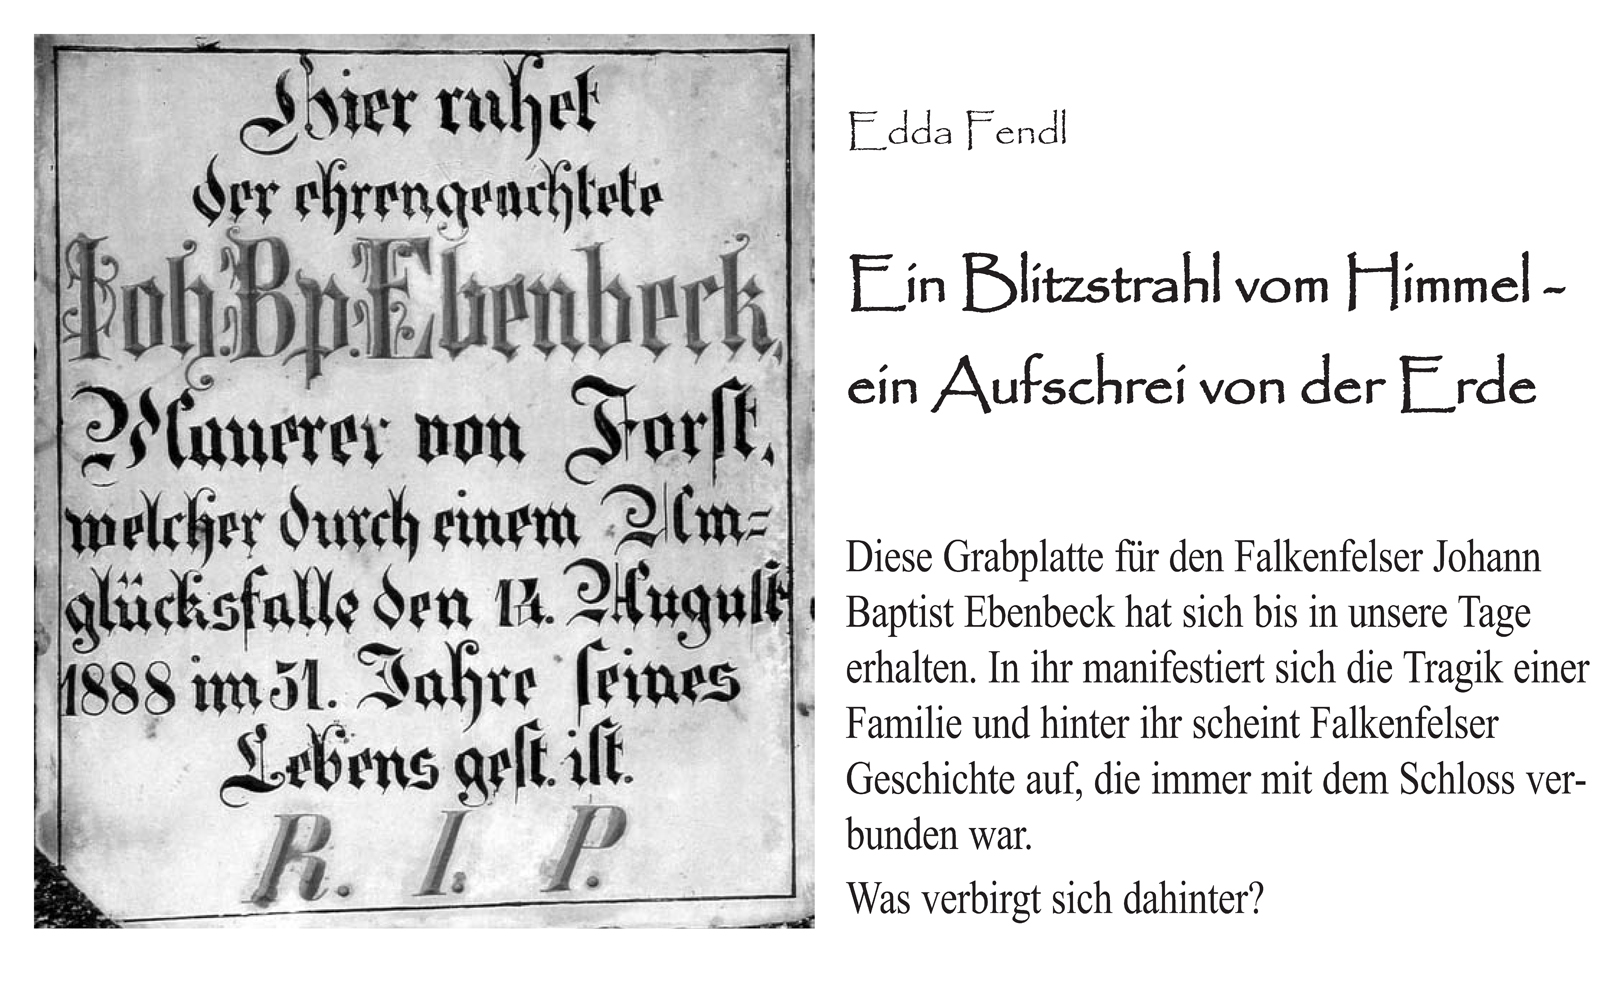 Hier ruhet
der ehrengeachtete
Joh. Bp. Ebenbeck,
Mauerer von Forst,
welcher durch einem Un=
glücksfalle den 14. August
1888 im 51. Jahre seines
Lebens gest. ist.
R. I. P.
Edda Fendl
Ein Blitzstrahl vom Himmel -
ein Aufschrei von der Erde
Diese Grabplatte für den Falkenfelser Johann
Baptist Ebenbeck hat sich bis in unsere Tage
erhalten. In ihr manifestiert sich die Tragik einer
Familie und hinter ihr scheint Falkenfelser
Geschichte auf, die immer mit dem Schloss ver-
bunden war.
Was verbirgt sich dahinter?